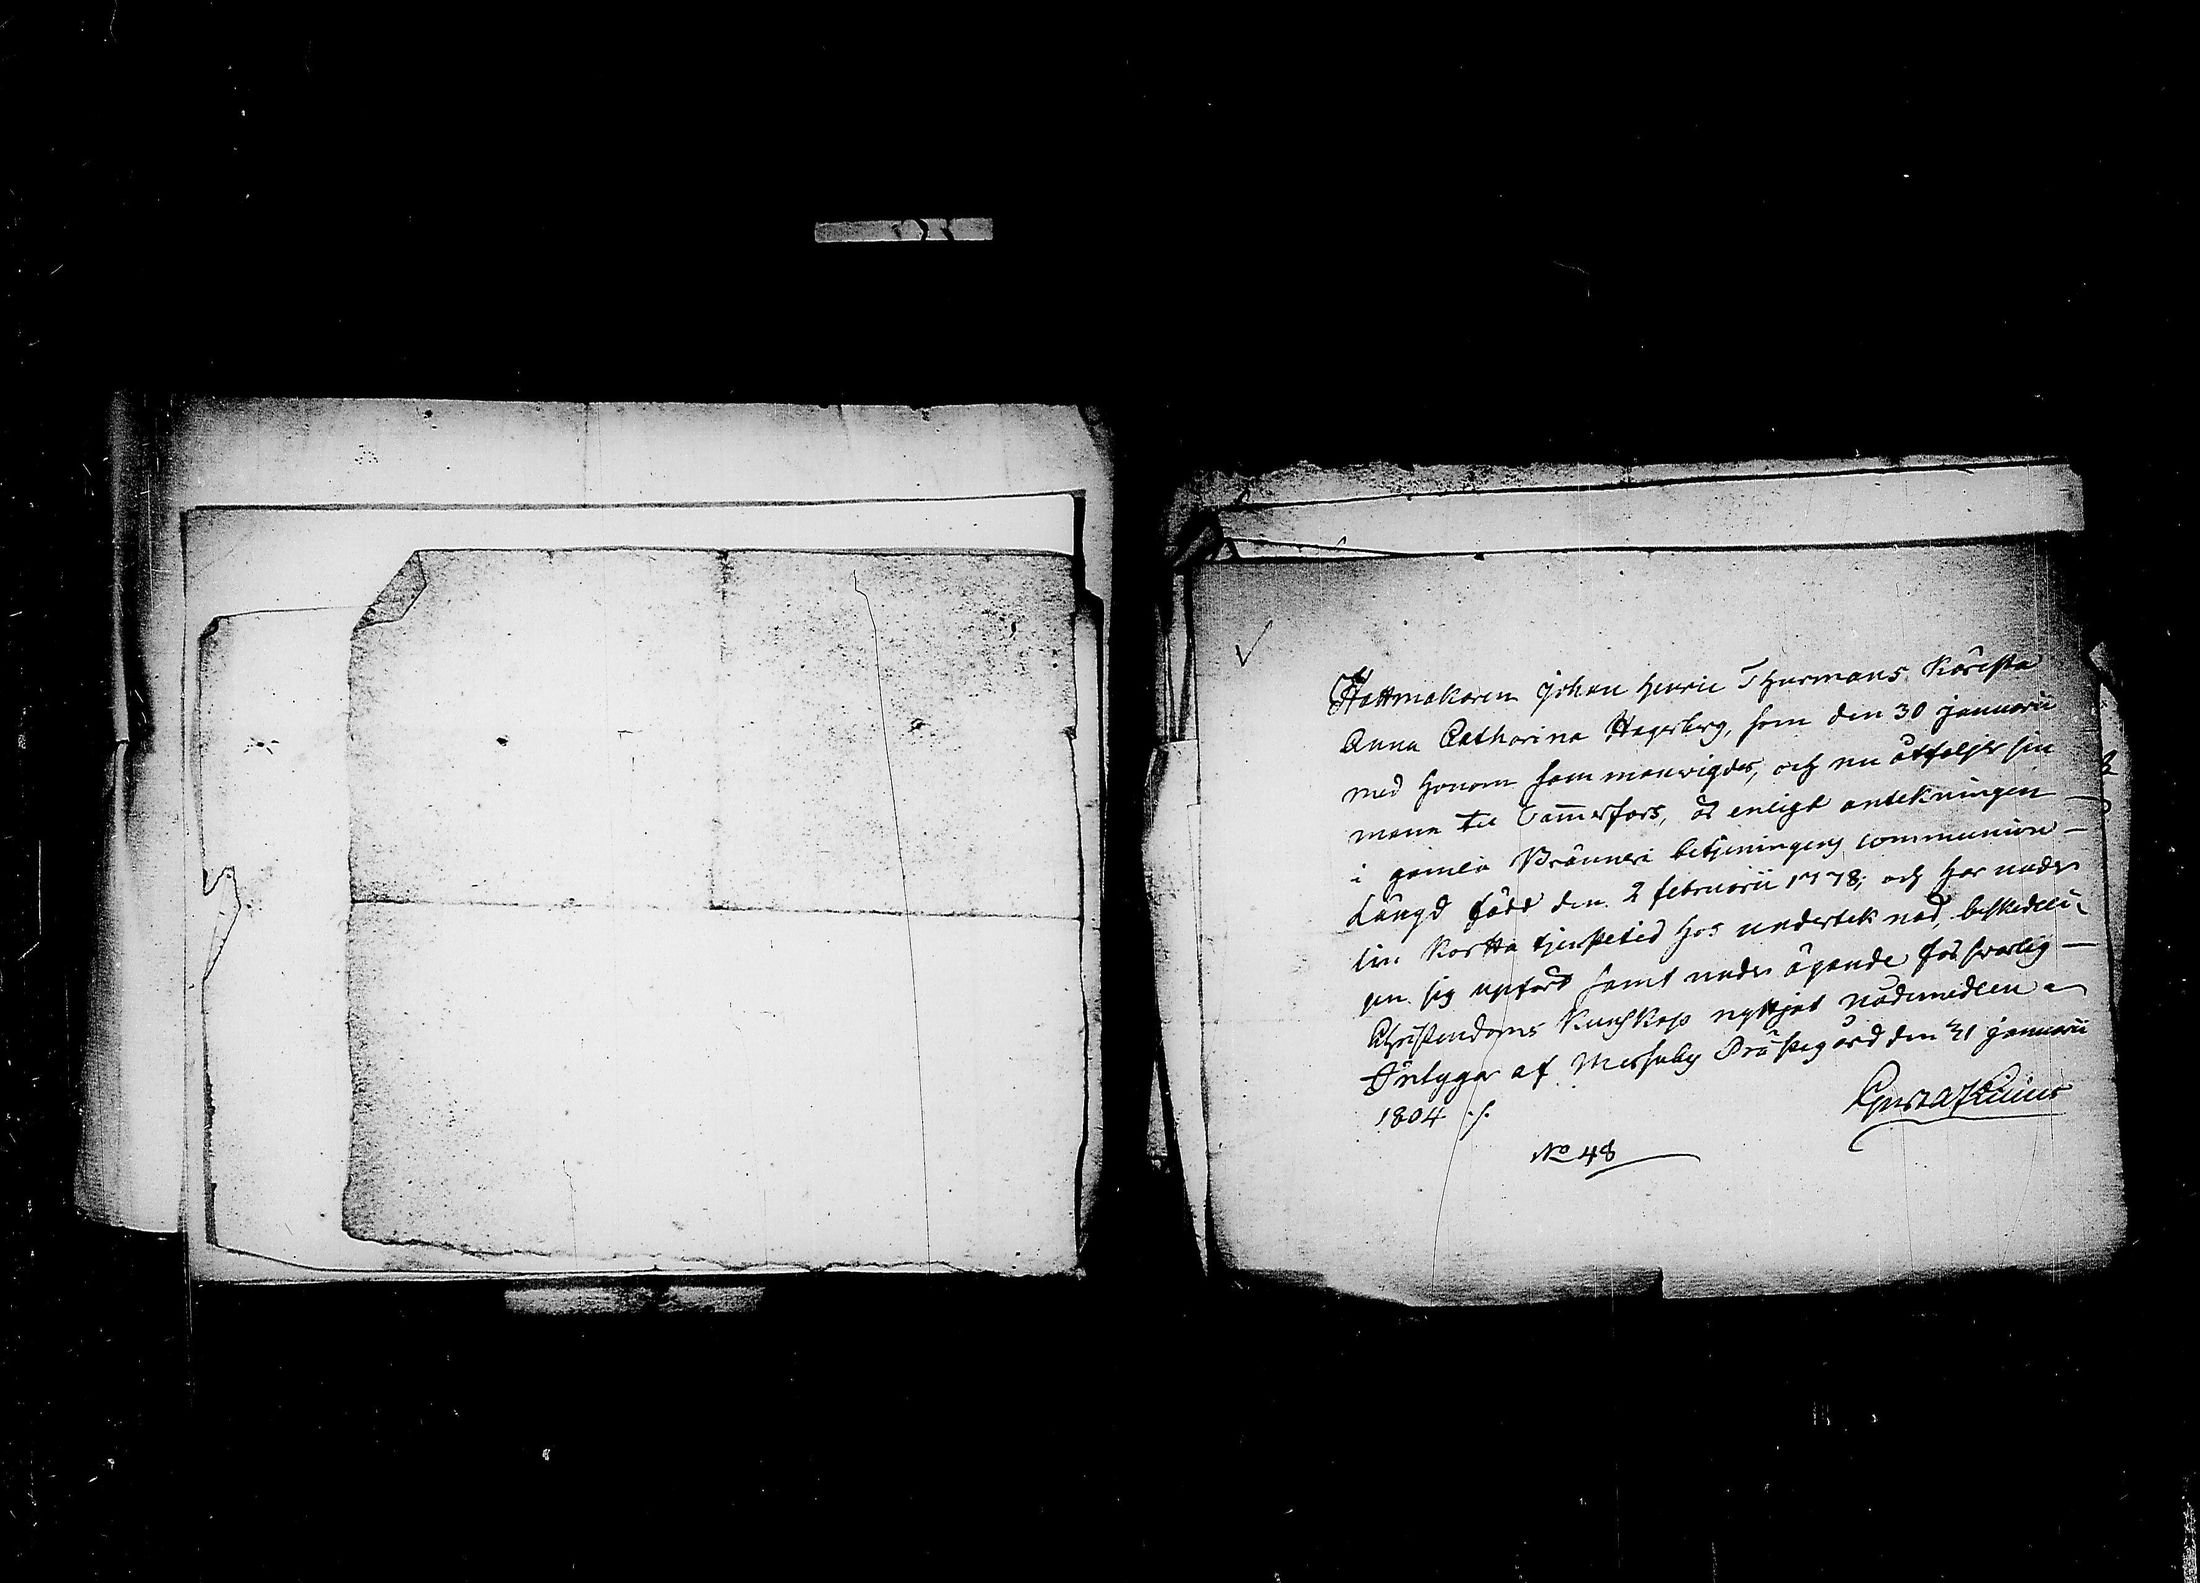 Hattmakaren Johan Henric Thurmans Käresta
Anna Catharina Hagerberg, som den 30 januarii
med honom sammanvigdes, och nu åtföljer sin
mann til Tammerfors, är enligt antekningen
i gamla Bränneri betjeningens communion-
Längd född den 2 februarii 1778, och har under
sin kortta tjenstetid hos underteknad, beskedeli-
gen sig upfört samt under ägande försvarlig
Christendoms kunskap nyttjat nådemedlen
Intygar af Messuby Prästegård den 31 januarii
1804 ./.
Gust
No 48